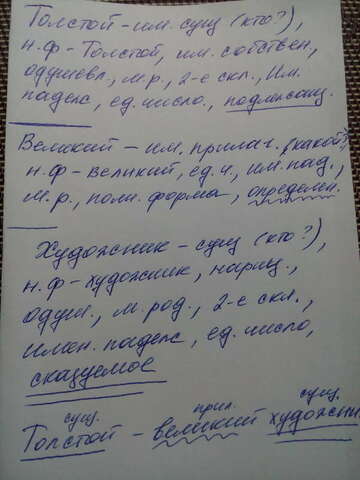 Толстой - им. сущ (кто?),
н.ф - Толстой, им. собствен,
одушевл., м.р., 2-е скл., Им.
падеж, ед. число., подлежащ.
Великий - им. прилаг. (какой?),
н.ф - великий, ед.ч., им. пад.,
м.р., полн. форма, определен.
Художник - сущ (кто?),
н.ф - художник, нариц.,
одуш., м. род., 2-е скл.,
Имен. падеж, ед. число,
сказуемое
сущ. прил. сущ.
Толстой - великий художни